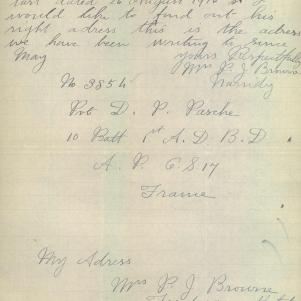 last dated 26 August 1916 so I
would like to find out his
right adress this is the adress
we have been writing to since
May yours Respectfully
Mrs P J Browne
Numdy
No 3854
Pvt D. P. Pasche
10 Batt 1st A. D. B. D
A. P. O. S. 17
France
My Adress
Mrs P. J. Browne